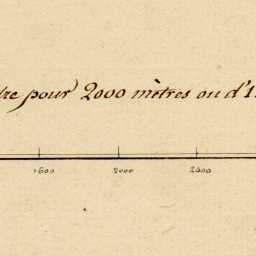 tre pour 2000 mètres ou d'1
1600 2000 2400